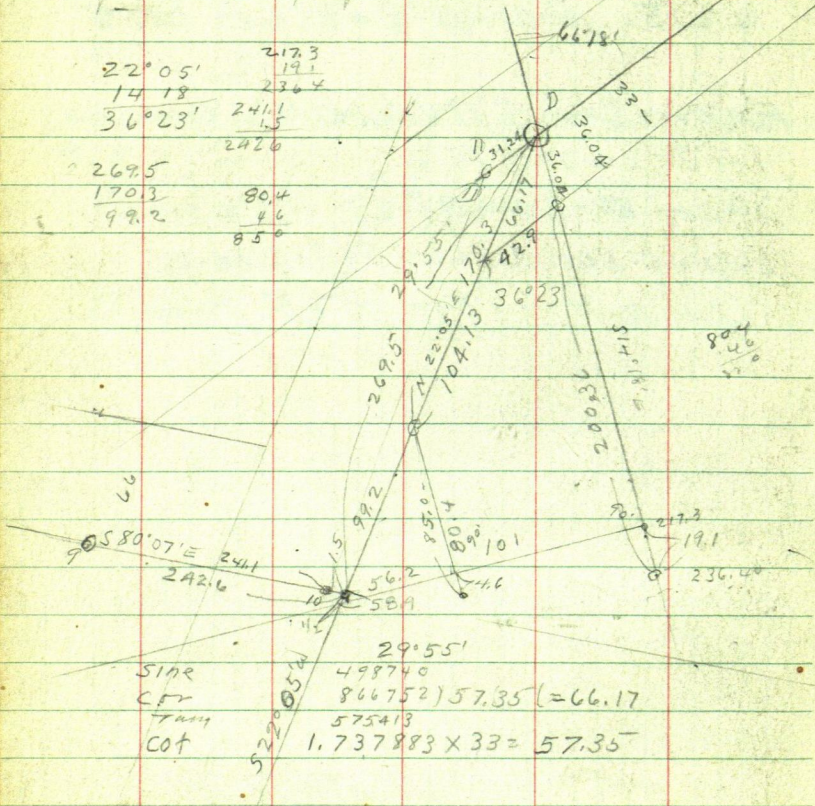 22°05'
14 18
36°23'
217.3
191
236 4
241.1
1.5
242.6
269.5
170.3
99.2
80.4
4 6
85 0
66°18'
33
D
36.04
31.24
36.04
66.17
42.9
170.3
29°55'
36°23
N 22°05' E
104.13
269.5
S14°18'E
200.32
66
99.2
85.0
80.4
90°
101
4.6
90°
217.3
19.1
236.4
9
S80°07'E
241.1
242.6
1.5
10
56.2
58.9
S22°05'W
29°55'
Sine 498740
866752)57.35(=66.17
575413
Cot 1.737883 X 33= 57.35